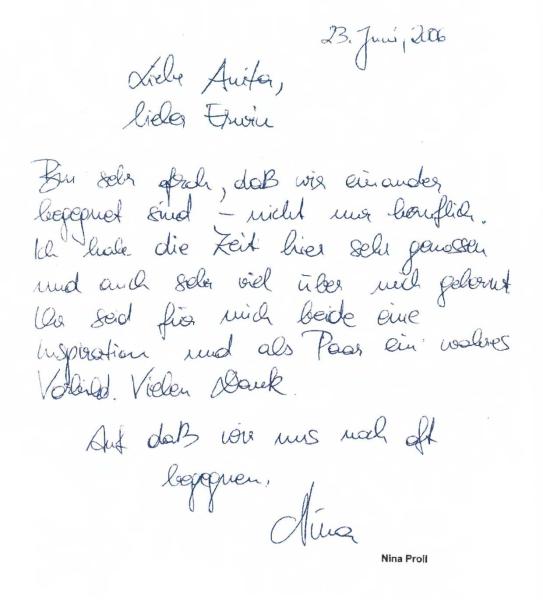 23. Juni, 2006
Liebe Anita,
lieber Erwin
Bin sehr froh, daß wir einander
begegnet sind - nicht nur beruflich.
Ich habe die Zeit hier sehr genossen
und auch sehr viel über mich gelernt
Ihr seid für mich beide eine
Inspiration und als Paar ein wahres
Vorbild. Vielen Dank.
Auf daß wir uns noch oft
begegnen.
Nina
Nina Proll